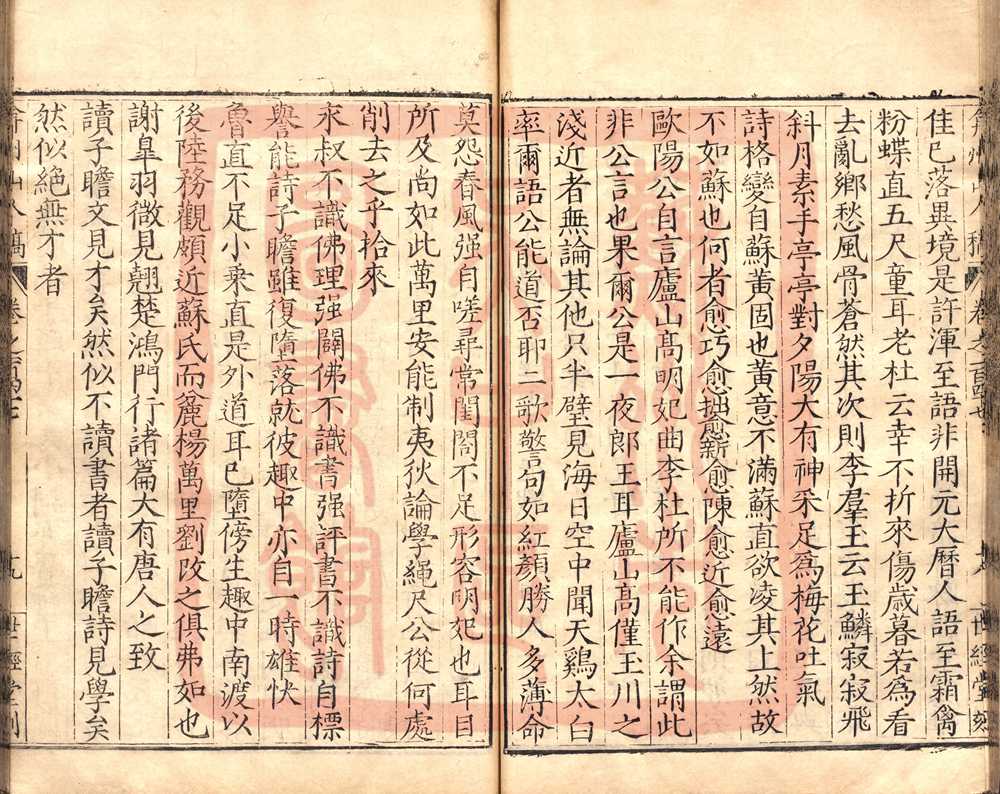 佳巳落異境是許渾至語非開元大曆人語至霜禽
粉蝶直五尺童耳老杜云幸不折來傷歲暮若為看
去亂鄉愁風骨蒼然其次則李羣玉云玉鱗寂寂飛
斜月素手亭亭對夕陽大有神采足為梅花吐氣
詩格變自蘇黃固也黃意不滿蘇直欲凌其上然故
不如蘇也何者愈巧愈拙愈新愈陳愈近愈遠
歐陽公自言廬山高明妃曲李杜所不能作余謂此
非公言也果爾公是一夜郎王耳廬山高僅玉川之
淺近者無論其他只半壁見海日空中聞天鷄太白
率爾語公能道否耶二歌警句如紅顏勝人多薄命
莫怨春風强自嗟尋常閨閤不足形容明妃也耳目
所及尚如此萬里安能制夷狄論學繩尺公從何處
削去之乎拾來
永叔不識佛理强闢佛不識書强評書不識詩自標
譽能詩子瞻雖復墮落就彼趣中亦自一時雄快
魯直不足小乗直是外道耳巳墮傍生趣中南渡以
後陸務觀頗近蘇氏而麄楊萬里劉改之俱弗如也
謝臯羽微見翹楚鴻門行諸篇大有唐人之致
讀子瞻文見才矣然似不讀書者讀子瞻詩見學矣
然似絕無才者